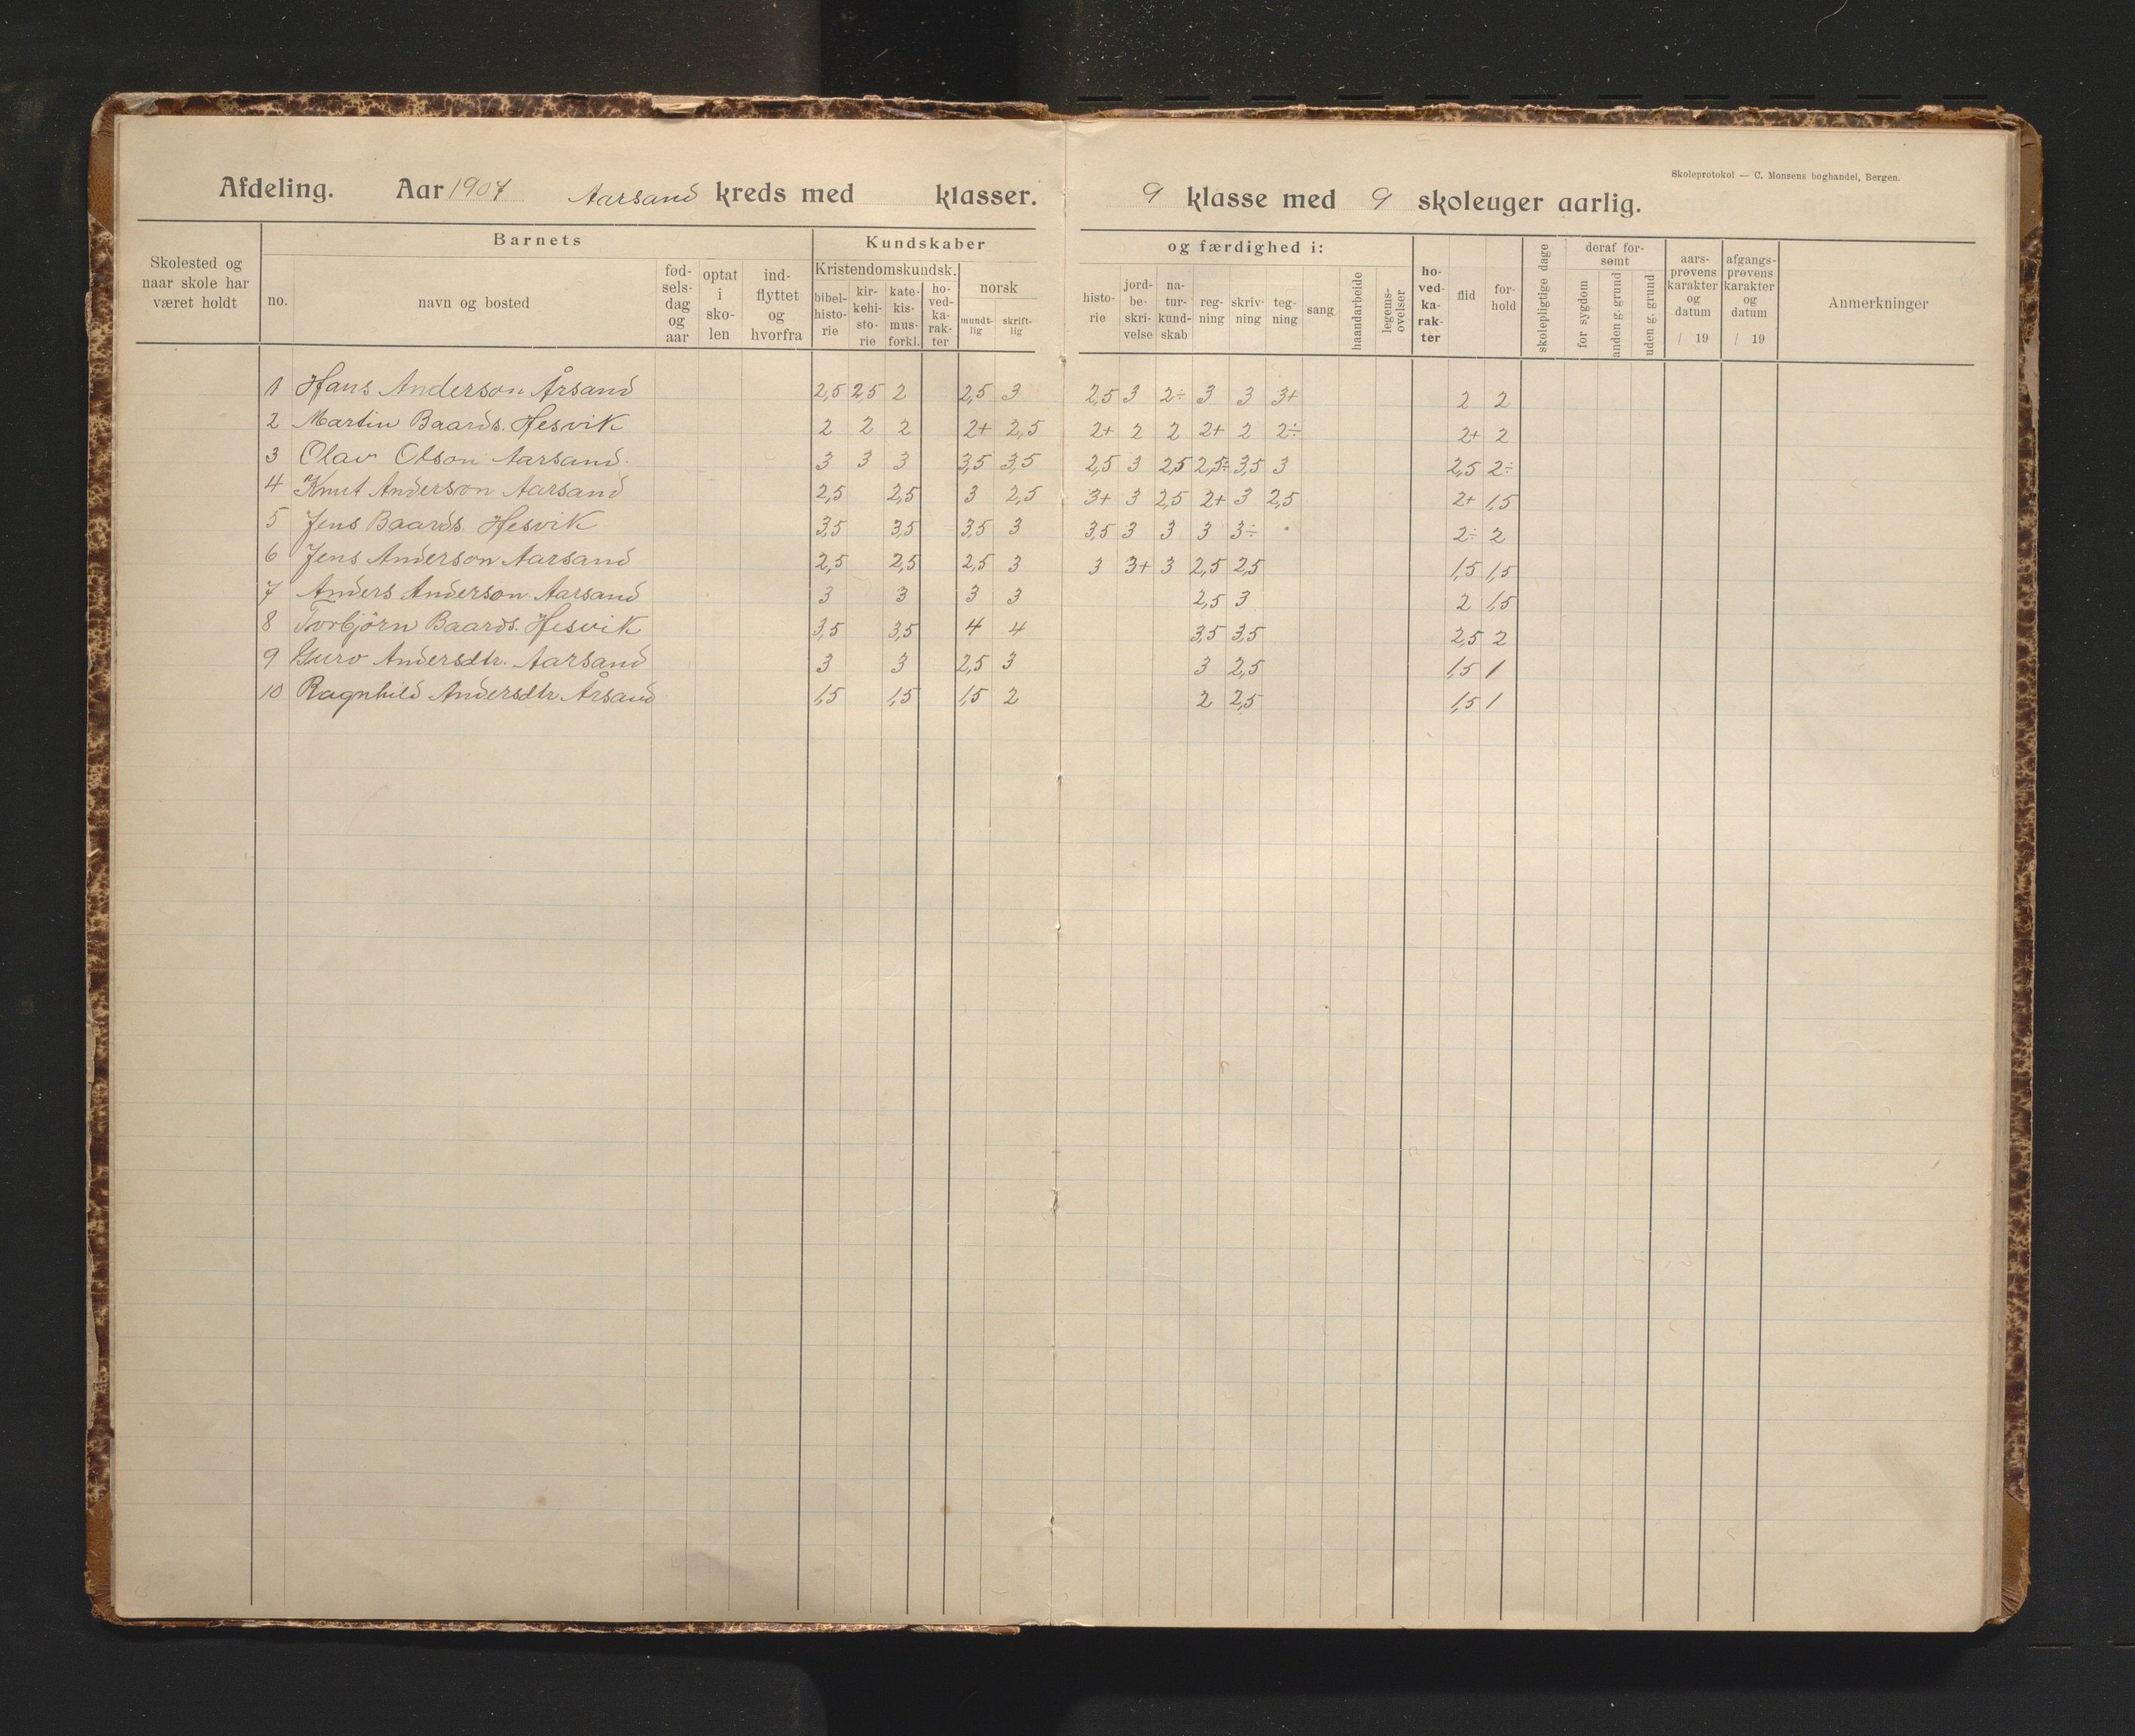 Skoleprotokol — C. Monsens boghandel, Bergen.
Afdeling. Aar 1907 Aarsand kreds med klasser. 9 klasse med 9 skoleuger aarlig.
Skolested og naar skole har været holdt
Barnets
no.
navn og bosted
fød-sels-dag og aar
optat i sko-len
ind-flyttet og hvorfra
Kundskaber
Kristendomskundsk.
bibel-histo-rie
kir-kehi-sto-rie
kate-kis-mus-forkl.
ho-ved-ka-rak-ter
norsk
mundt-lig
skrift-lig
og færdighed i:
histo-rie
jord-be-skri-velse
na-tur-kund-skab
reg-ning
skriv-ning
teg-ning
sang
haandarbeide
legems-ovelser
ho-ved-ka-rak-ter
flid
for-hold
skolepligtige dage
deraf for-sømt
for sygdom
anden g. grund
uden g. grund
aars-prøvens karakter og datum / 19
afgangs-prøvens karakter og datum / 19
Anmerkninger
1 Hans Anderson Årsand 2,5 2,5 2 2,5 3 2,5 3 2÷ 3 3 3+ 2 2
2 Martin Baards. Hesvik 2 2 2 2+ 2,5 2+ 2 2 2+ 2 2÷ 2+ 2
3 Olav Olson Aarsand. 3 3 3 3,5 3,5 2,5 3 2,5 2,5÷ 3,5 3 2,5 2÷
4 Knut Anderson Aarsand 2,5 2,5 3 2,5 3+ 3 2,5 2+ 3 2,5 2+ 1,5
5 Jens Baards. Hesvik 3,5 3,5 3,5 3 3,5 3 3 3 3÷ 2÷ 2
6 Jens Anderson Aarsand 2,5 2,5 2,5 3 3 3+ 3 2,5 2,5 1,5 1,5
7 Anders Anderson Aarsand 3 3 3 3 2,5 3 2 1,5
8 Torbjörn Baards. Hesvik 3,5 3,5 4 4 3,5 3,5 2,5 2
9 Guro Andersdtr. Aarsand 3 3 2,5 3 3 2,5 1,5 1
10 Ragnhild Andersdtr Årsand 1,5 1,5 1,5 2 2 2,5 1,5 1